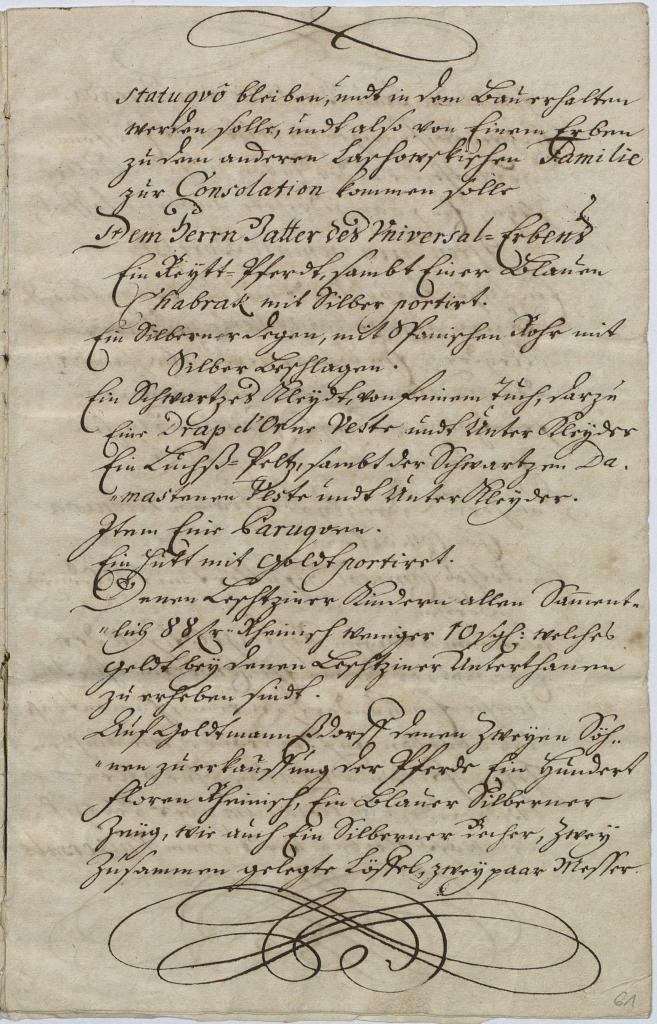 statuqvô bleiben, undt in dem Bau erhalten
werden solle, undt also von Einem Erben
zu dem anderen Laschowskischen Familie
zur Consolation kommen solle
Dem Herrn Vatter des Vniversal-Erbens
Ein Reytt-Pferdt, sambt Einer Blauen
Chabrak mit Silber portirt.
Ein Silberner Degen, mit Spanischen Rohr mit
Silber Beschlagen.
Ein Schwartzes Kleydt, von feinem Tuch, darzu
Eine Drap d'Orne Veste undt Unter Kleyder
Ein Luchß-Peltz, sambt der Schwartzen Da-
mastenen Veste undt Unter Kleyder.
Item Eine Paruqven.
Ein Hutt mit Goldt portiret.
Denen Leschtziner Kindern allen Sament-
lich 88 fr. Rheinisch weniger 10 sgl: welches
Geldt bey denen Leschtziner Unterthanen
zu erheben sindt.
Auf Goldtmannßdorff denen Zweyen Söh-
nen zu erkauffung der Pferde Ein Hundert
Floren Rheinisch, Ein Blauer Silberner
Zeüg, wie auch Ein Silberner Becher, Zwey
Zusammen gelegte Löffel, zwey paar Messer.
61